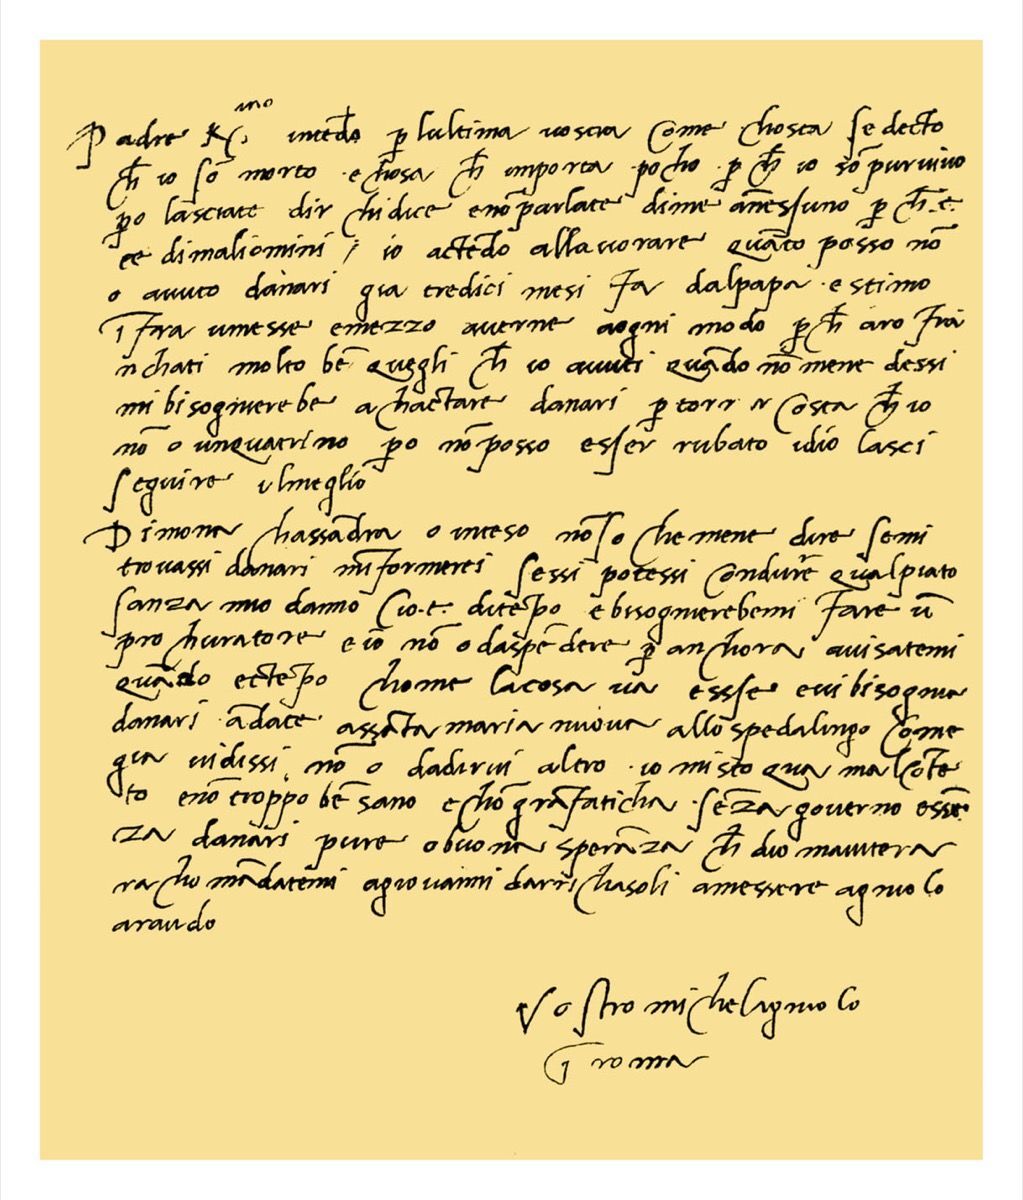 Padre Kmo intēdo p̄ lultima vostra Come chosta se decto
ch̄ io sō morto e chosa ch̄ importa pocho p̄ ch̄ io sō pur vivo
p̄o lasciate dir chi dice e nō parlate di me a nessuno p̄ ch̄ e
ce di mali omini / io actēdo allavorare quāto posso nō
o avuto danari gia tredici mesi fa dal papa e stimo
ī fra u mese e mezzo averne a ogni modo p̄ ch̄ aro fra
nchati molto bē quegli ch̄ io avuti quādo nō me ne dessi
mi bisogniere be achactare danari p̄ tor n r Costa ch̄ io
nō o un quatrino p̄o nō posso esser rubato idio lasci
seguire il meglio
Di mona chassādra o inteso nō so che me ne dire se mi
trovassi danari mīformerei sessi potessi Condurre qua il piato
sanza mio danno Cioe di tēpo e bisognierebemi fare ū
prochuratore e io nō o da spēdere p̄ anchora avisatemi
quādo e ctēpo chome la cosa va essse e vi bisognia
danari ādate a ssāta maria nuova allo spedalingo Come
gia vi dissi nō o da dirvi altro io mi sto qua mal Cōtē
to e nō troppo bē sano e chō grā faticha sēza governo e ssē
za danari pure o buona sperāza ch̄ dio maiutera
rachomādatemi a giovanni da richasoli a messere agniolo
araudo
Vostro michelagniolo
ī roma